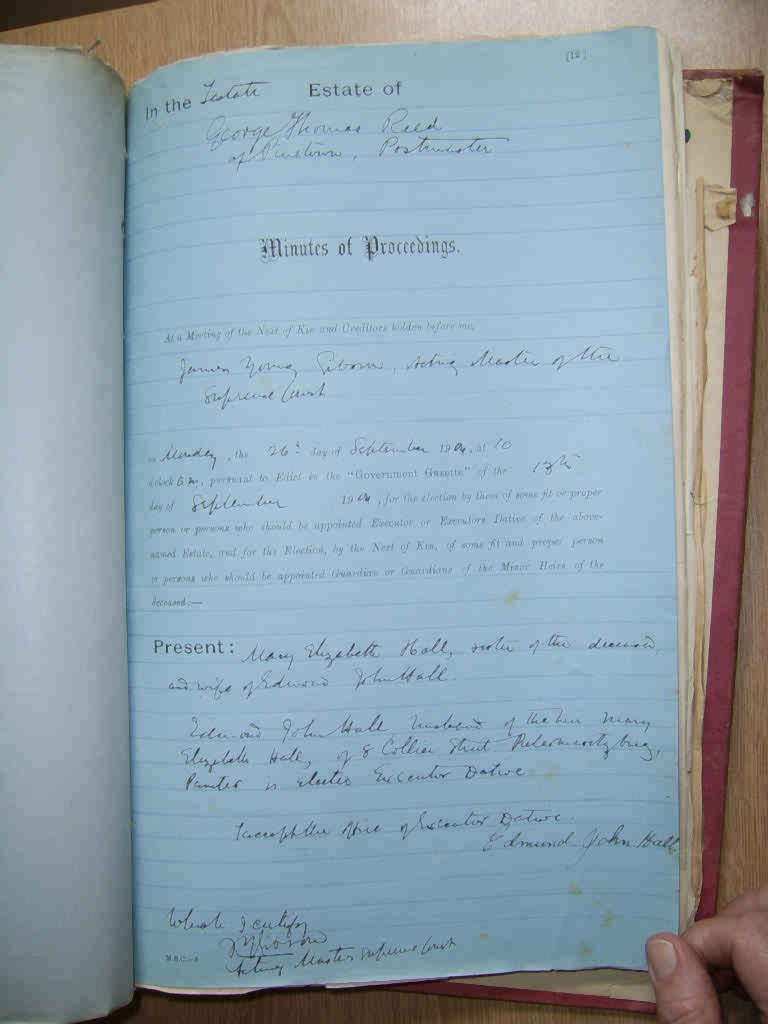 [12]
In the Testate Estate of
George Thomas Reed
of Pinetown, Postmaster
Minutes of Proceedings.
At a Meeting of the Next of Kin and Creditors holden before me,
James Young Gibson, Acting Master of the
Supreme Court
on Monday, the 26th day of September 1904, at 10
o'clock a.m., pursuant to Edict in the "Government Gazette" of the 13th
day of September 1904, for the election by them of some fit or proper
person or persons who should be appointed Executor or Executors Dative of the above-
named Estate, and for the Election, by the Next of Kin, of some fit and proper person
or persons who should be appointed Guardian or Guardians of the Minor Heirs of the
deceased:—
Present: Mary Elizabeth Hall, sister of the deceased,
and wife of Edmund John Hall.
Edmund John Hall husband of the Mary
Elizabeth Hall, of 8 Collier Street Pietermaritzburg,
Painter is elected Executor Dative
I accept the Office of Executor Dative.
Edmund John Hall
Which I certify
JYGibson
M.S.C.—8 Acting Master Supreme Court